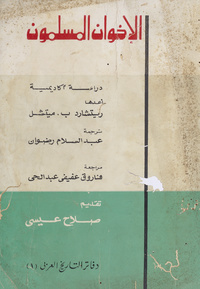 الإخوان المسلمون
دراسة أكاديمية
أعدها
ريتشارد ب. ميتشل
ترجمة
عبد السلام رضوان
مراجعة
فاروق عفيفى عبد الحى
تقديم
صلاح عيسى
دفاتر التاريخ العربى (١)